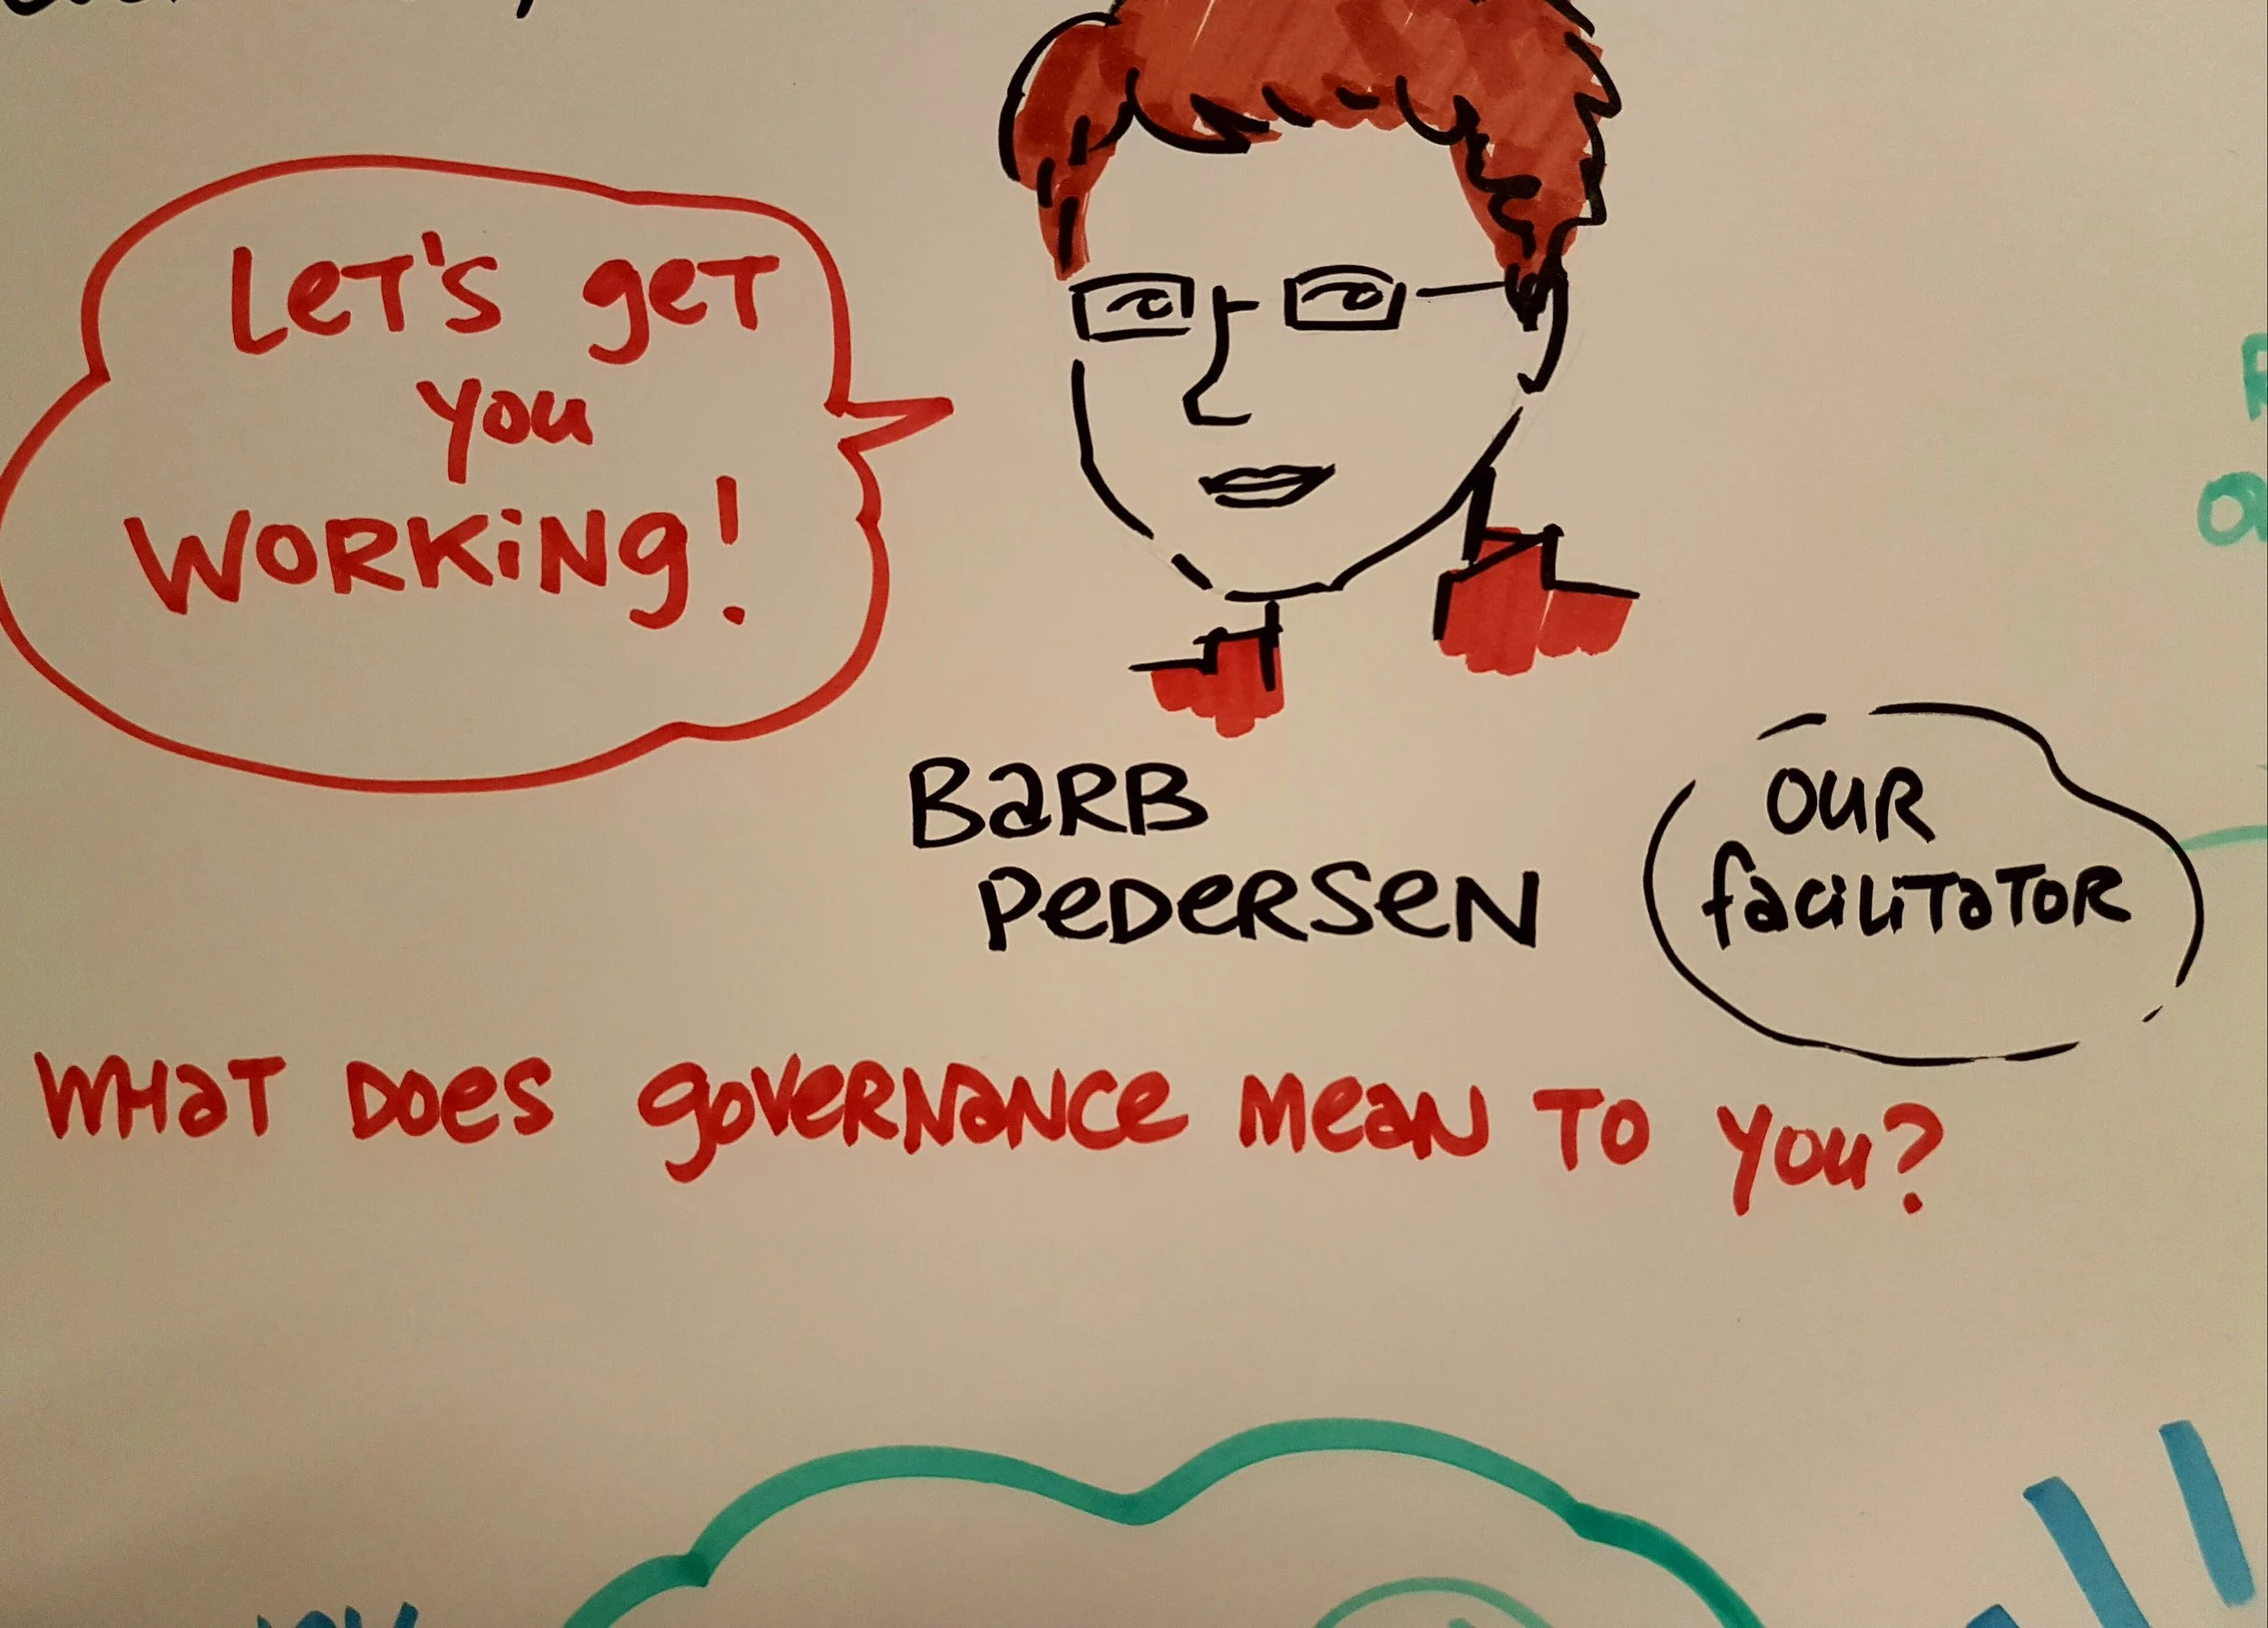 Let's get
you
working!
Barb
Pedersen
our
facilitator
What does governance mean to you?